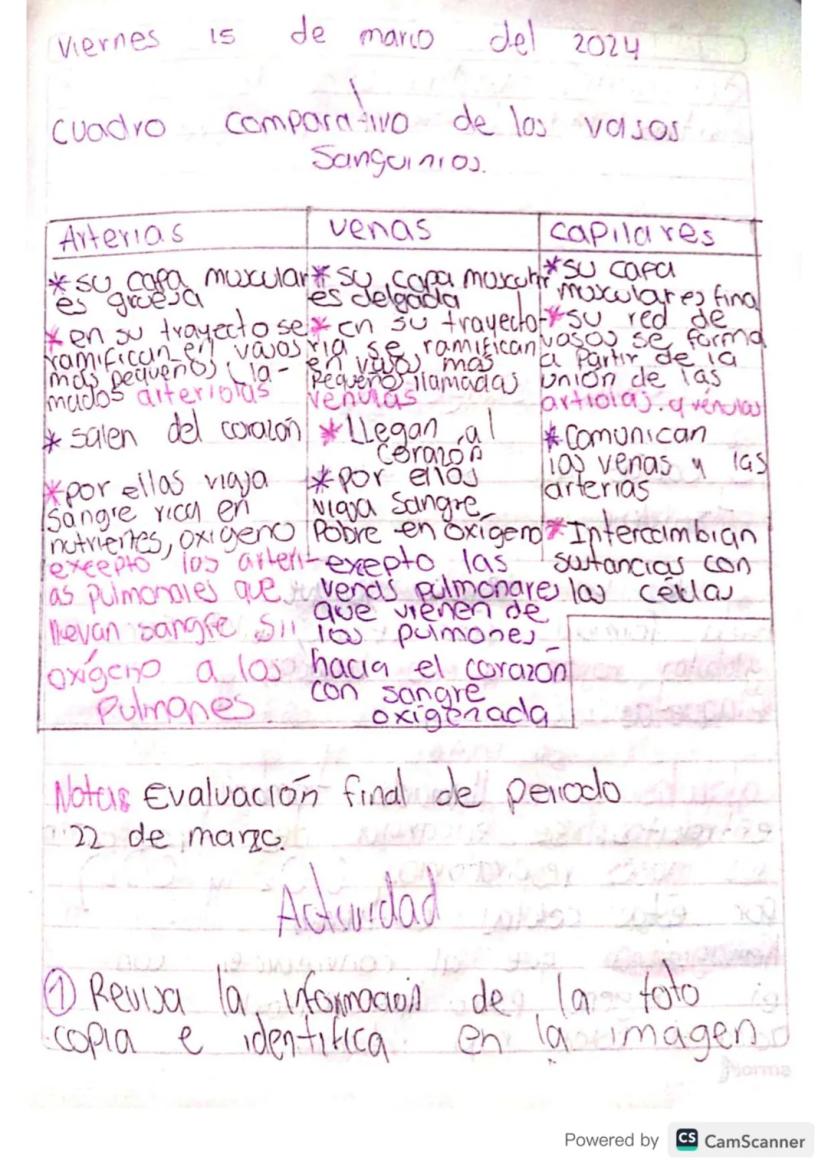 Viernes 15 de marzo del 2024
Cuadro comparativo de los vasos
Sanguinios.
Arterias
* su capa muscular
es gruesa
* en su trayecto se
ramifican en vasos
más pequeños lla-
mados arteriolas
* salen del corazón
* por ellas viaja
sangre rica en
nutrientes, oxígeno
excepto las arteri-
as pulmonales que
llevan sangre sin
oxígeno a los
Pulmones
venas
* su capa muscular
es delgada
* en su trayecto-
ria se ramifican
en vasos mas
pequeños llamadas
venulas
* LLegan al
corazón
* por ellas
viaja sangre
Pobre en oxígeno
exepto las
venas pulmonares
que vienen de
los pulmones
hacia el corazón
con sangre
oxigenada
capilares
* su capa
muscular es fina
* su red de
vasos se forma
a partir de la
unión de las
artiolas. y vénulas
* Comunican
las venas y las
arterias
* Intercambian
sustancias con
las células
Notas Evaluación final de periodo
22 de marzo.
Actividad
① Revisa la información de la foto
copia e identifica en la imagen
Norma
Powered by CS CamScanner